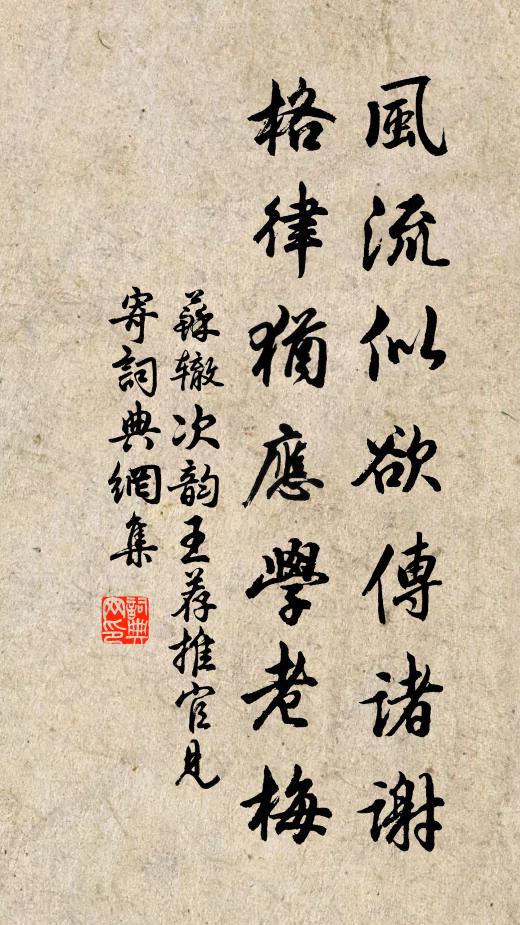 風流似欲傳諸謝
格律猶應學老梅
蘇辙次韵王荐推官見
寄詞典網集
詞典
网印